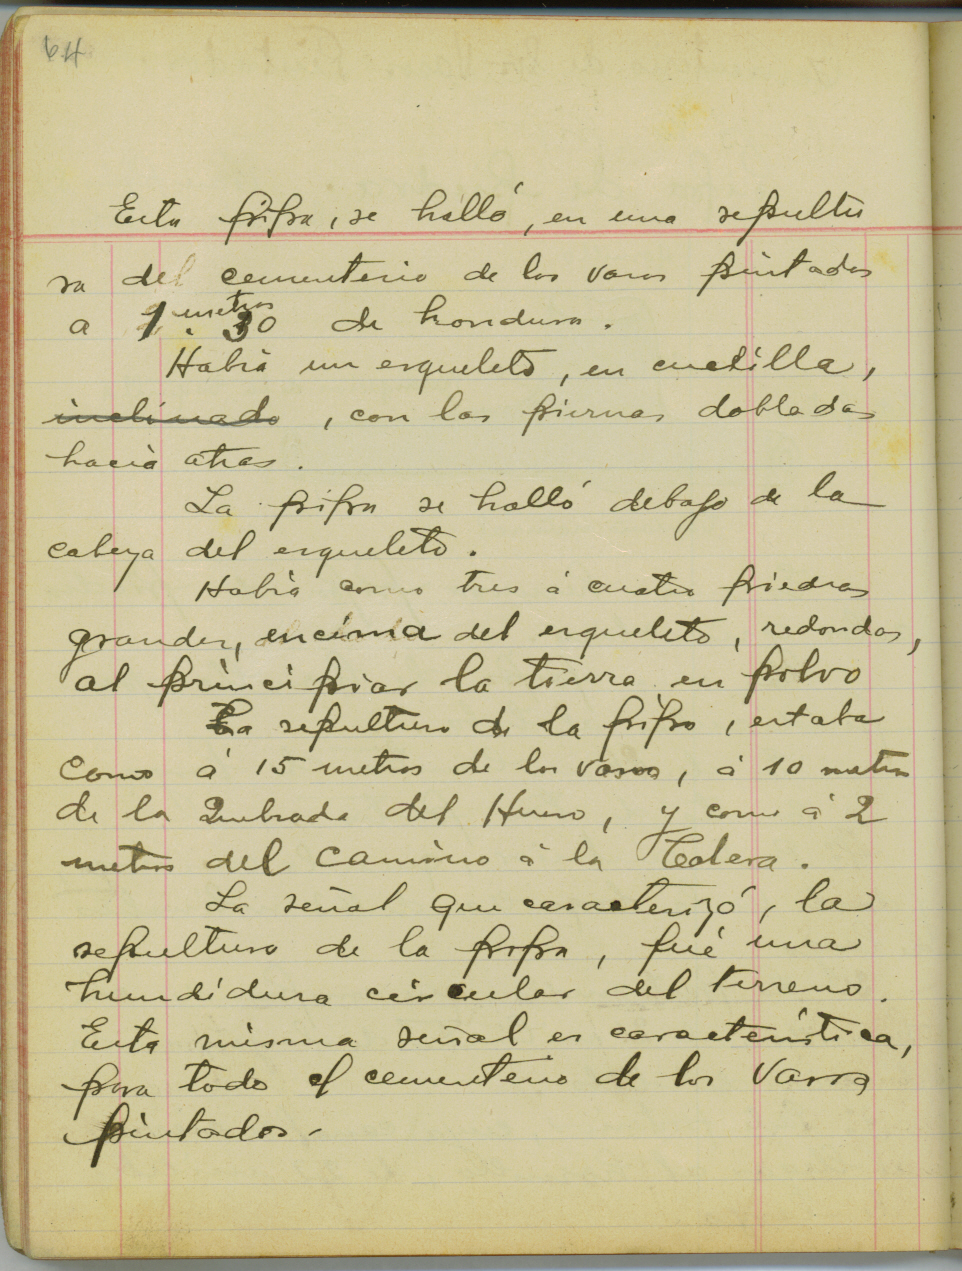 64
Esta pipa, se halló, en una sepultu
ra del cementerio de los vasos pintados
a 1 metros 30 de hondura.
Habia un esqueleto, en cuclilla,
inclinado, con las piernas dobladas
hacia atras.
La pipa se halló debajo de la
cabeza del esqueleto.
Habia como tres á cuatro piedras
grandes, encima del esqueleto, redondas,
al principiar la tierra en polvo
La sepultura de la pipa, estaba
como á 15 metros de los vasos, á 10 metros
de la Quebrada del Hueso, y como á 2
metros del camino á la Calera.
La señal que caracterizó, la
sepultura de la pipa, fué una
hundidura circular del terreno.
Esta misma señal es característica,
para todo el cementerio de los Vasos
pintados.